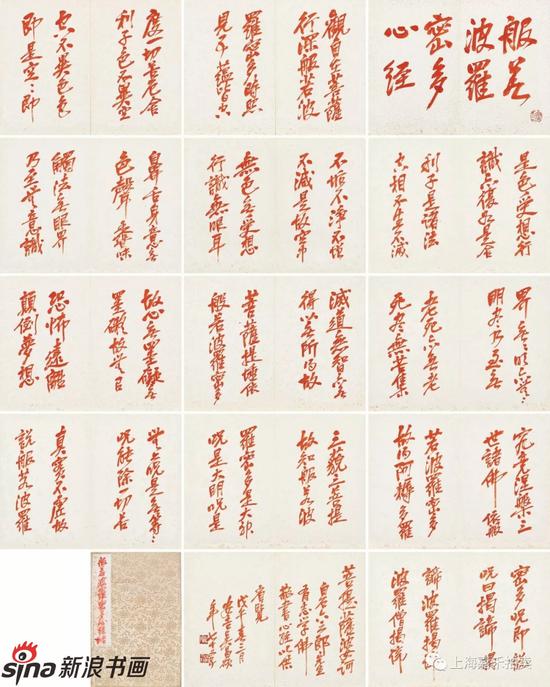 般若
波羅
密多
心经
觀自在菩薩
行深般若波
羅密多時照
見五蘊皆空
度一切苦厄舍
利子色不異空
空不異色色
即是空々即
是色受想行
識亦復如是舍
利子是諸法
空相不生不滅
不垢不淨不增
不減是故空中
無色無受想
行識無眼耳
鼻舌身意無
色聲香味
觸法無眼界
乃至無意識
界無無明亦無々
明盡乃至無
老死亦無老
死盡無苦集
滅道無智亦無
得以無所得故
菩薩提埵依
般若波羅密多
故心無罣礙無
罣礙故無有
恐怖遠離
顛倒夢想
究竟涅槃三
世諸佛依般
若波羅密多
故得阿耨多羅
三藐三菩提
故知般若波
羅密多是大神
呪是大明呪是
無上呪是無等々
呪能除一切苦
真實不虛故
說般若波羅
密多呪即說
呪曰揭諦揭
諦波羅揭諦
波羅僧揭諦
菩提薩婆訶
白石六三郎先生
有志學佛
敬書心經以供
省覽
戊午春三月
安吉吳昌碩
年七十五
sina新浪书画